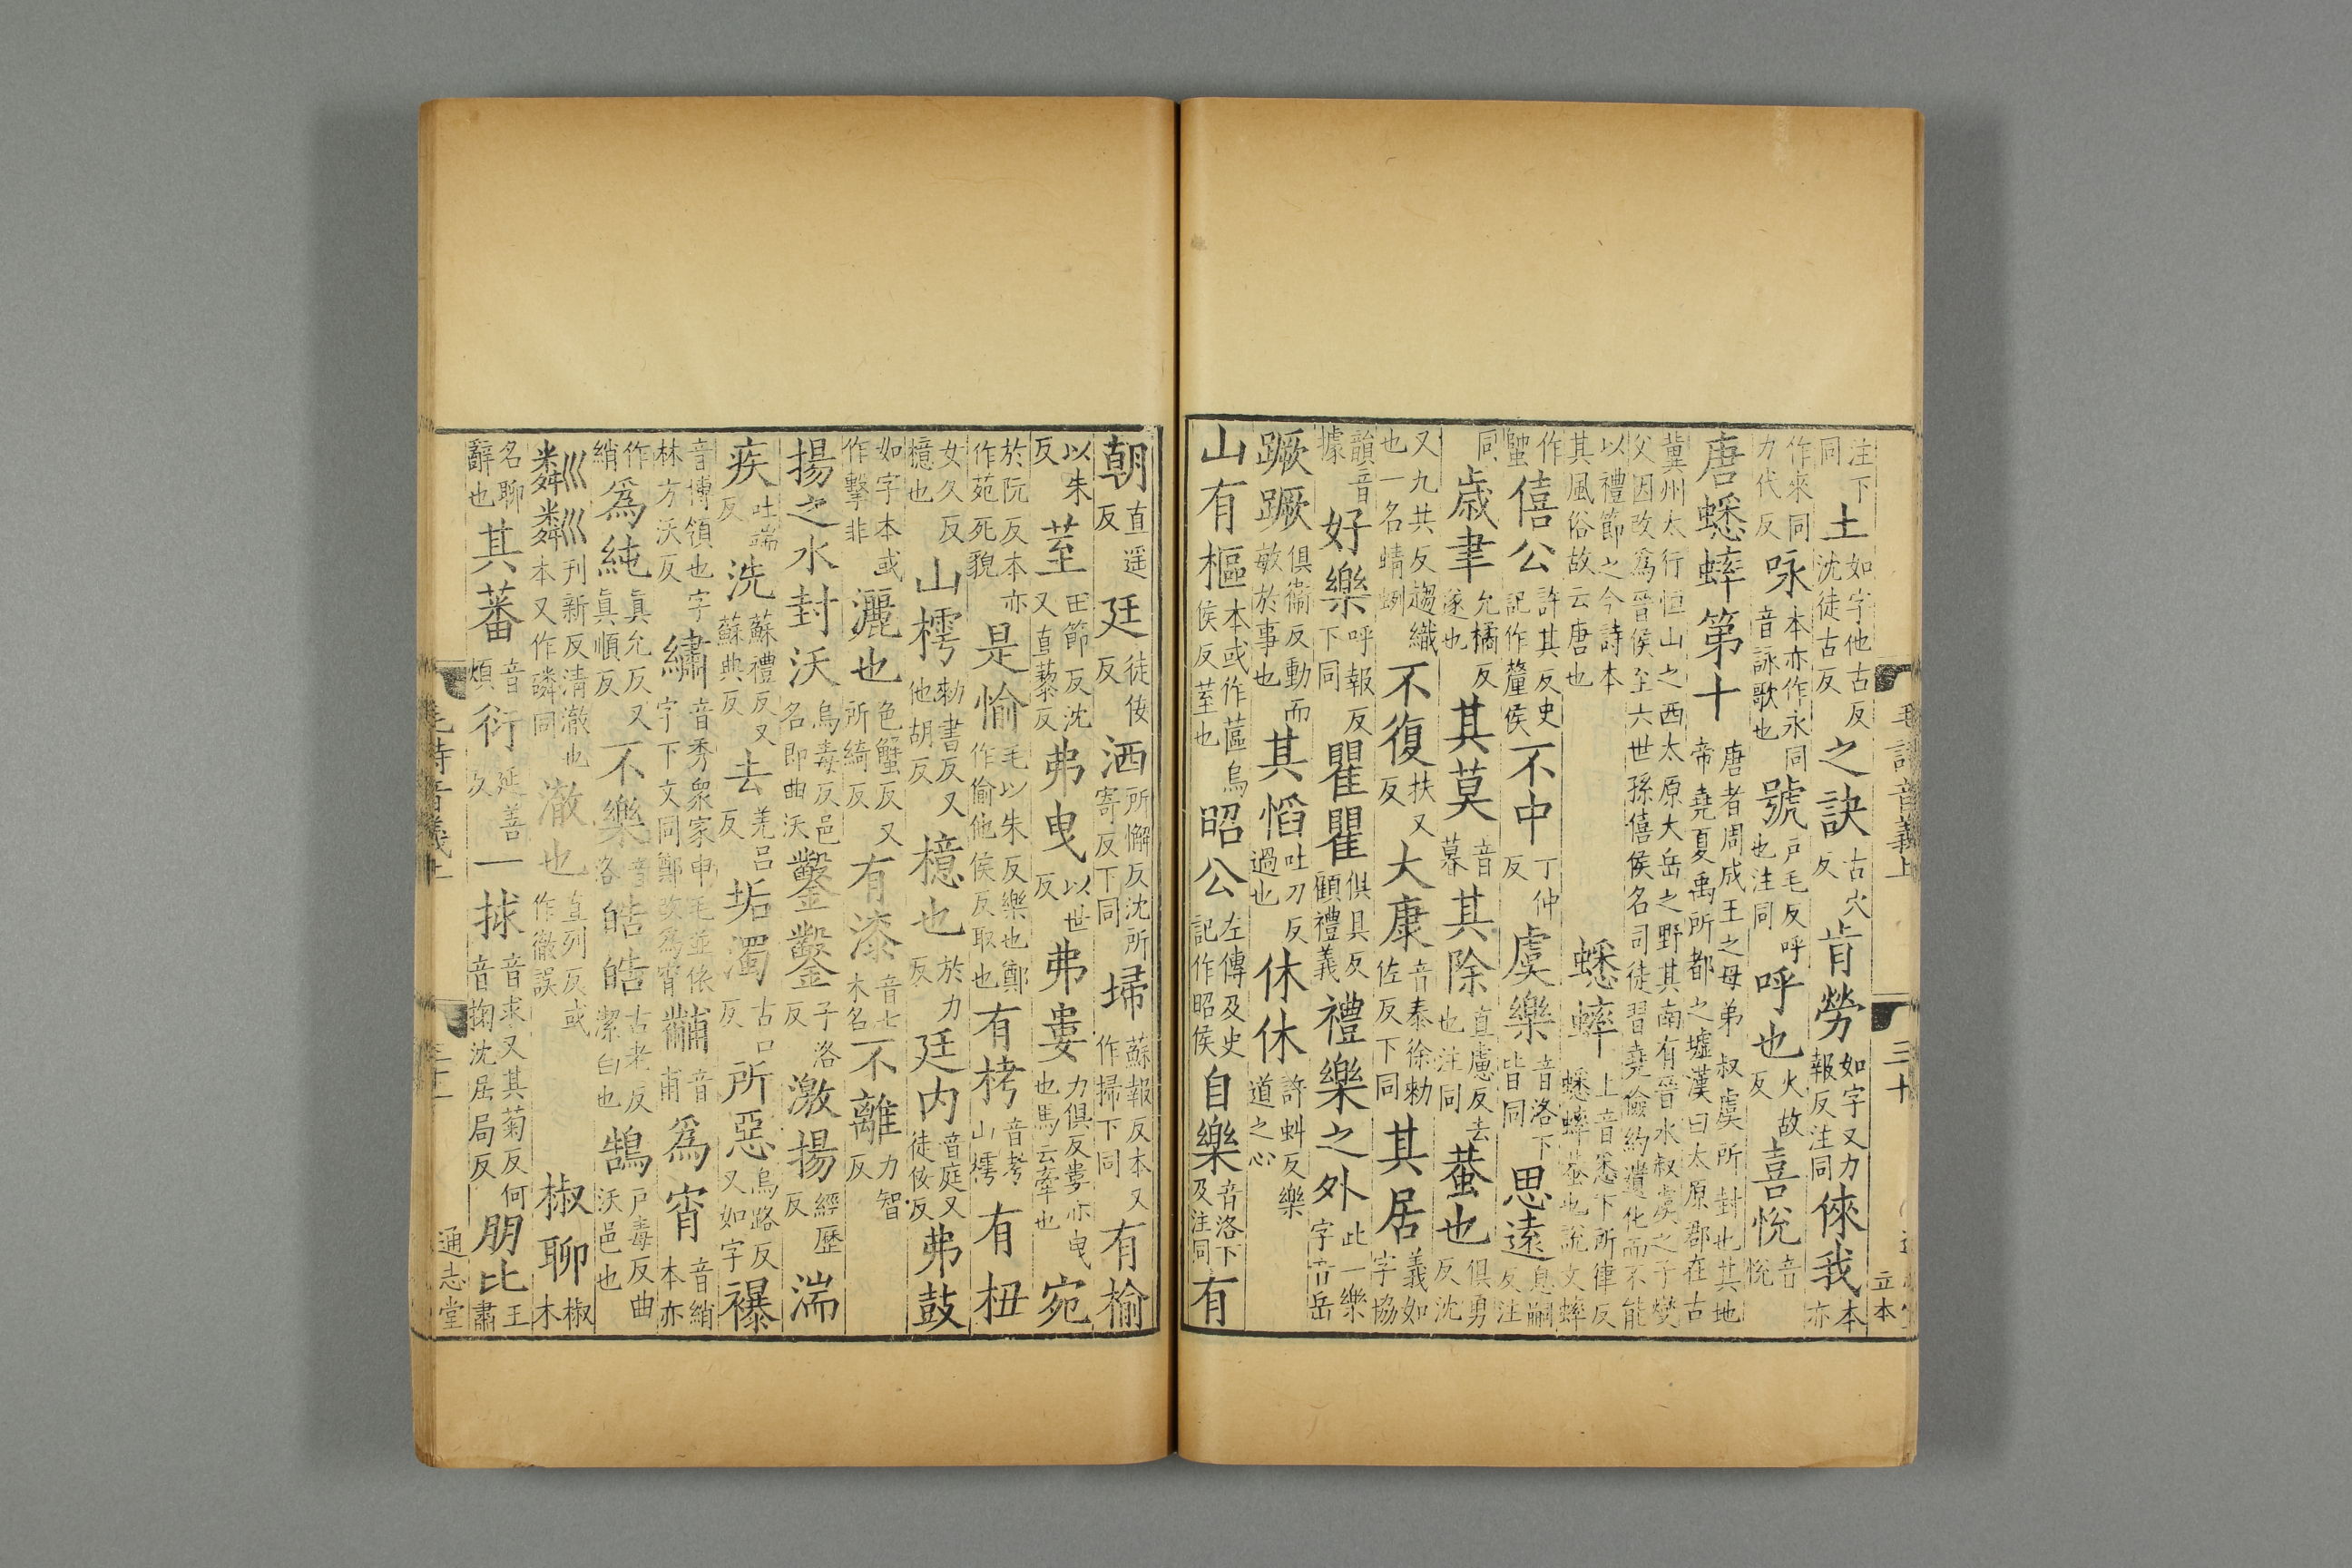 注下同土如字他古反沈徒古反之訣古穴反肯勞如字又力報反注同俫我本亦
作來同力代反咏本亦作永同音詠歌也號戸毛反呼也注同呼也火故反喜悅音悅
唐蟋蟀第十唐者周成王之母弟叔虞所封也其地帝堯夏禹所都之墟漢曰太原郡在古
冀州太行恒山之西太原大岳之野其南有晉水叔虞之子燮父因改爲晉侯至六世孫僖侯名司徒習堯儉約遺化而不能
以禮節之今詩本其風俗故云唐也蟋蟀上音悉下所律反蟋蟀蛬也說文蟀
作𧍓僖公許其反史記作釐侯不中丁仲反虞樂音洛下皆同思遠息嗣反注
同歲聿允橘反遂也其莫音暮其除直慮反去也注同蛬也俱勇反沈
又九共反趨織也一名蜻蛚不復扶又反大康音泰徐勑佐反下同其居義如字協
韻音據好樂呼報反下同瞿瞿俱具反顧禮義禮樂之外此一樂字音岳
蹶蹶俱衞反動而敏於事也其慆吐刀反過也休休許虯反樂道之心
山有樞本或作蓲烏侯反荎也昭公左傳及史記作昭侯自樂音洛下及注同有
毛詩音義上 三十
朝直遥反廷徒佞反洒所懈反沈所寄反下同埽蘇報反本又作掃下同有榆
以朱反荎田節反沈又直藜反弗曳以世反弗婁力俱反婁亦曳也馬云牽也宛
於阮反本亦作苑死貌是愉毛以朱反樂也鄭作偷他侯反取也有栲音考山樗有杻
女久反檍也山樗勑書反又他胡反檍也於力反廷内音庭又徒佞反弗鼓
如字本或作擊非灑也色蟹反又所綺反有漆音七木名不離力智反
揚之水封沃烏毒反邑名即曲沃鑿鑿子洛反激揚經歷反湍
疾吐端反洗蘇禮反又蘇典反去羌呂反垢濁古口反所惡烏路反又如字襮
音博領也字林方沃反繡音秀衆家申毛並依字下文同鄭改爲宵黼音甫爲宵音綃本亦
作綃爲純眞允反又眞順反不樂音洛皓皓古老反潔白也鵠戸毒反曲沃邑也
粼粼刊新反清澈也本又作磷同澈也直列反或作徹誤椒聊椒木
名聊辭也其蕃音煩衍延善反一捄音求又其菊反何音掬沈居局反朋比王肅
通志堂